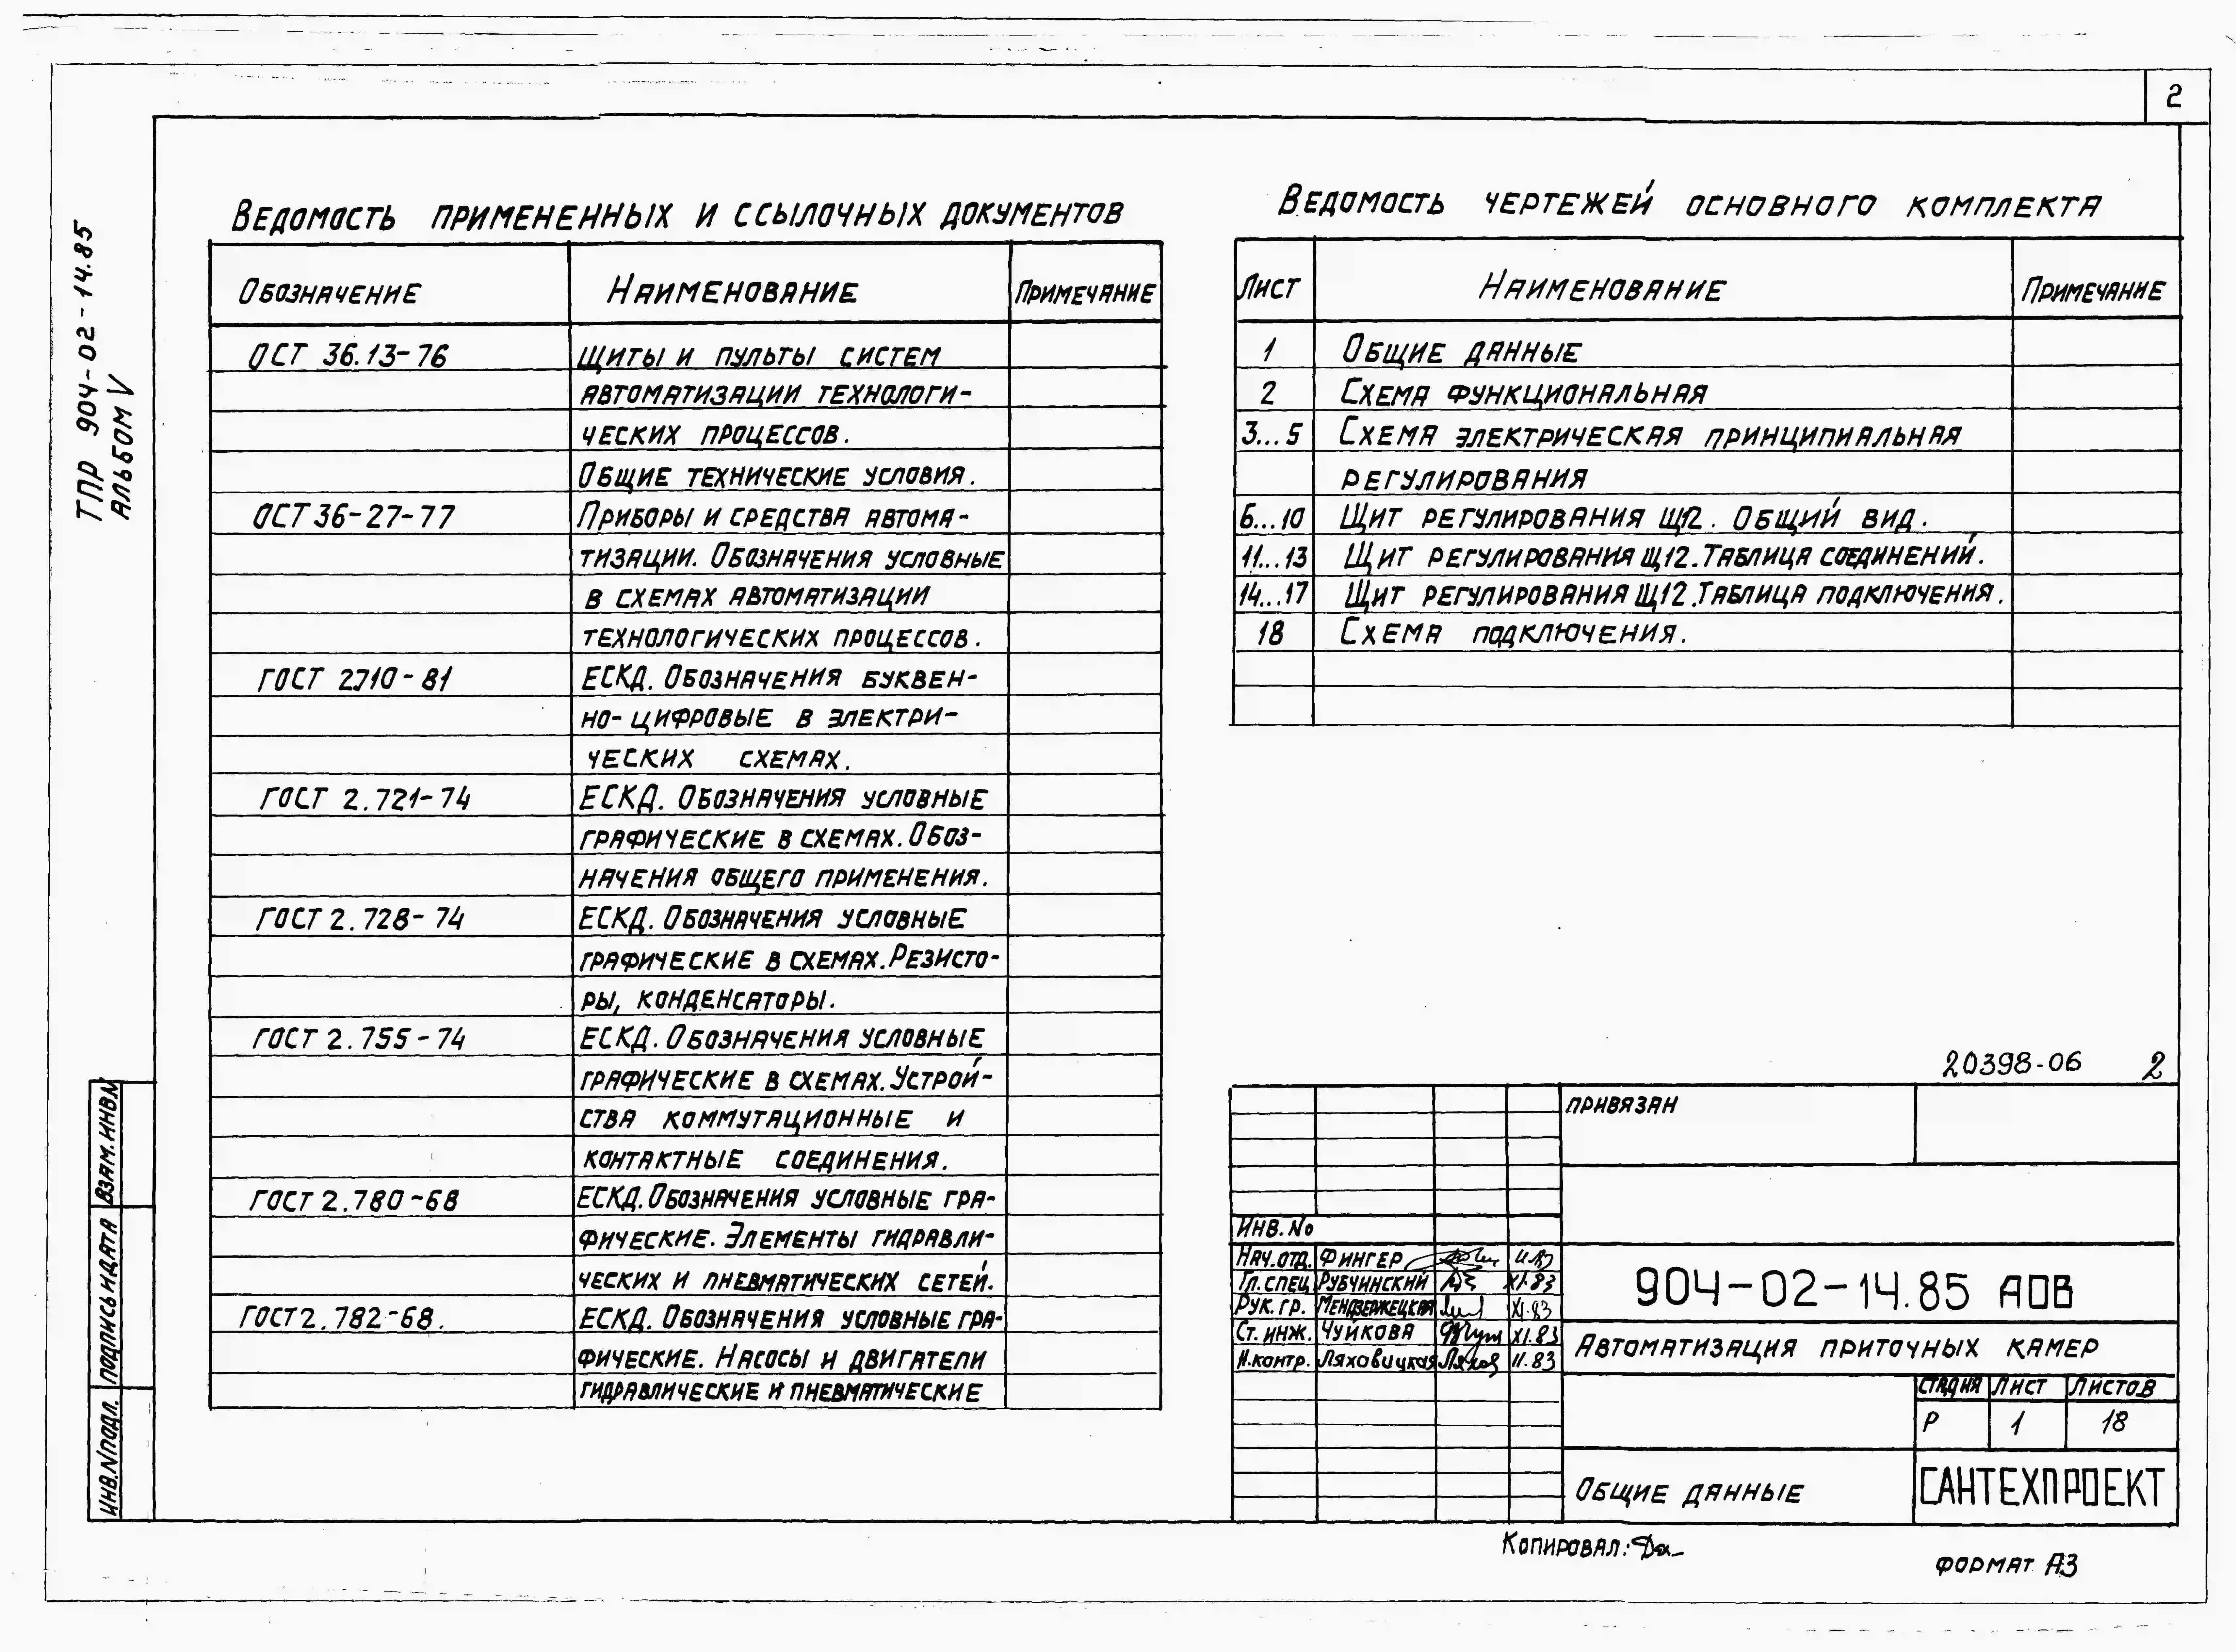 2
ТПР 904-02-14.85
АЛЬБОМ V
ВЕДОМОСТЬ ПРИМЕНЕННЫХ И ССЫЛОЧНЫХ ДОКУМЕНТОВ
ОБОЗНАЧЕНИЕ НАИМЕНОВАНИЕ ПРИМЕЧАНИЕ
ОСТ 36.13-76 ЩИТЫ И ПУЛЬТЫ СИСТЕМ
АВТОМАТИЗАЦИИ ТЕХНОЛОГИ-
ЧЕСКИХ ПРОЦЕССОВ.
ОБЩИЕ ТЕХНИЧЕСКИЕ УСЛОВИЯ.
ОСТ 36-27-77 ПРИБОРЫ И СРЕДСТВА АВТОМА-
ТИЗАЦИИ. ОБОЗНАЧЕНИЯ УСЛОВНЫЕ
В СХЕМАХ АВТОМАТИЗАЦИИ
ТЕХНОЛОГИЧЕСКИХ ПРОЦЕССОВ.
ГОСТ 2.710-81 ЕСКД. ОБОЗНАЧЕНИЯ БУКВЕН-
НО-ЦИФРОВЫЕ В ЭЛЕКТРИ-
ЧЕСКИХ СХЕМАХ.
ГОСТ 2.721-74 ЕСКД. ОБОЗНАЧЕНИЯ УСЛОВНЫЕ
ГРАФИЧЕСКИЕ В СХЕМАХ. ОБОЗ-
НАЧЕНИЯ ОБЩЕГО ПРИМЕНЕНИЯ.
ГОСТ 2.728-74 ЕСКД. ОБОЗНАЧЕНИЯ УСЛОВНЫЕ
ГРАФИЧЕСКИЕ В СХЕМАХ. РЕЗИСТО-
РЫ, КОНДЕНСАТОРЫ.
ГОСТ 2.755-74 ЕСКД. ОБОЗНАЧЕНИЯ УСЛОВНЫЕ
ГРАФИЧЕСКИЕ В СХЕМАХ. УСТРОЙ-
СТВА КОММУТАЦИОННЫЕ И
КОНТАКТНЫЕ СОЕДИНЕНИЯ.
ГОСТ 2.780-68 ЕСКД. ОБОЗНАЧЕНИЯ УСЛОВНЫЕ ГРА-
ФИЧЕСКИЕ. ЭЛЕМЕНТЫ ГИДРАВЛИ-
ЧЕСКИХ И ПНЕВМАТИЧЕСКИХ СЕТЕЙ.
ГОСТ 2.782-68. ЕСКД. ОБОЗНАЧЕНИЯ УСЛОВНЫЕ ГРА-
ФИЧЕСКИЕ. НАСОСЫ И ДВИГАТЕЛИ
ГИДРАВЛИЧЕСКИЕ И ПНЕВМАТИЧЕСКИЕ
ВЕДОМОСТЬ ЧЕРТЕЖЕЙ ОСНОВНОГО КОМПЛЕКТА
ЛИСТ НАИМЕНОВАНИЕ ПРИМЕЧАНИЕ
1 ОБЩИЕ ДАННЫЕ
2 СХЕМА ФУНКЦИОНАЛЬНАЯ
3...5 СХЕМА ЭЛЕКТРИЧЕСКАЯ ПРИНЦИПИАЛЬНАЯ
РЕГУЛИРОВАНИЯ
6...10 ЩИТ РЕГУЛИРОВАНИЯ Щ12. ОБЩИЙ ВИД.
11...13 ЩИТ РЕГУЛИРОВАНИЯ Щ12. ТАБЛИЦА СОЕДИНЕНИЙ.
14...17 ЩИТ РЕГУЛИРОВАНИЯ Щ12. ТАБЛИЦА ПОДКЛЮЧЕНИЯ.
18 СХЕМА ПОДКЛЮЧЕНИЯ.
20398-06 2
ПРИВЯЗАН
ИНВ. №
НАЧ. ОТД. ФИНГЕР
ГЛ. СПЕЦ. РУБЧИНСКИЙ XI.83
РУК. ГР. МЕНДЗЕРЖЕЦКАЯ XI.83
СТ. ИНЖ. ЧУЙКОВА XI.83
Н.контр. Ляховицкая 11.83
904-02-14.85 АОВ
АВТОМАТИЗАЦИЯ ПРИТОЧНЫХ КАМЕР
СТАДИЯ ЛИСТ ЛИСТОВ
Р 1 18
ОБЩИЕ ДАННЫЕ
САНТЕХПРОЕКТ
КОПИРОВАЛ:
ФОРМАТ А3
ВЗАМ. ИНВ. №
ПОДПИСЬ И ДАТА
ИНВ. № ПОДЛ.